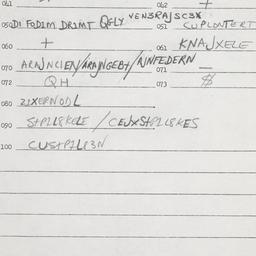 041 062 +
050 DI FODIM DRIMT QFLY VEN3RAJSC3X 051 CUPLONTERT
060 + 061 KNAJXELE
070 ARAJNCIEN/ARAJNGEBT/NNFEDERN 071 —
072 QH 073 $
080 21XERNODL
090 StP1L8KELE / CEJXStP1L8KES
100 CUStP1L83N